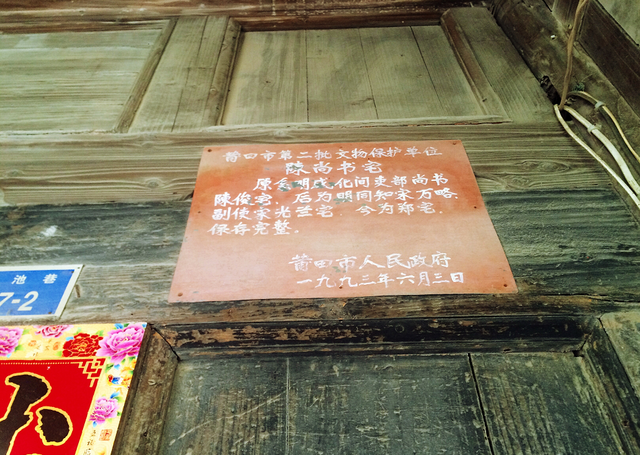 莆田市第二批文物保护单位
陈尚书宅
原系明成化间吏部尚书
陈俊宅，后为明同知宋万略、
副使宋光兰宅，今为郑宅。
保存完整。
莆田市人民政府
一九九三年六月三日
池巷
7-2